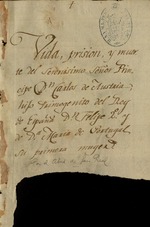 Vida, prision, y muer
te del Serenisimo Señor Prin
cipe Dn. Carlos de Austria
hijo primogenito del Rey
de España Dn. Felipe 2º y
de Dª Maria de Portugal
su primera muger